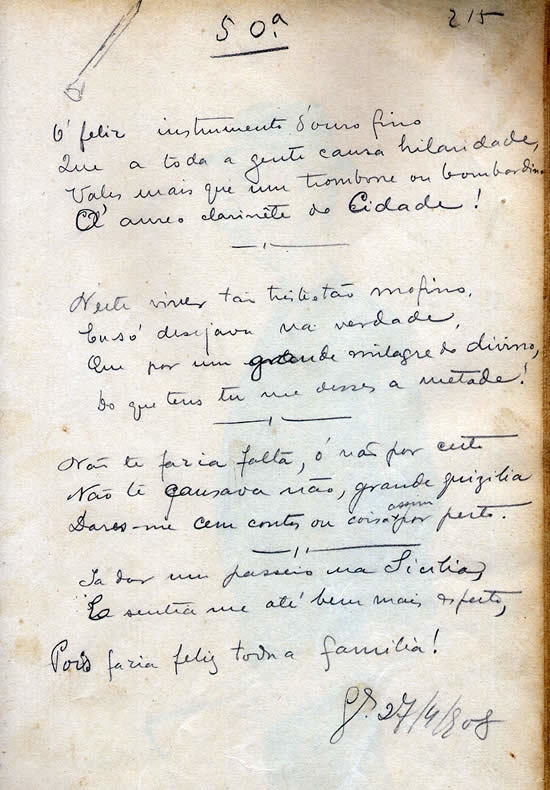 50.ª
215
O' feliz instrumento d'ouro fino
Que a toda a gente causa hilaridade,
Vales mais que um trombone ou bombardino
O' aureo clarinete do Cidade!
Neste viver tão triste tão mofino,
Eu só desejava na verdade,
Que por um grande milagre do divino,
Do que tens tu me desses a metade!
Não te fazia falta, ó não por certo
Não te causava não, grande quizilia
Dares-me cem contos ou coisa assim por perto.
Ia dar um passeio na Sicilia,
E sentia me até bem mais esperto,
Pois fazia feliz toda a familia!
27/4/908